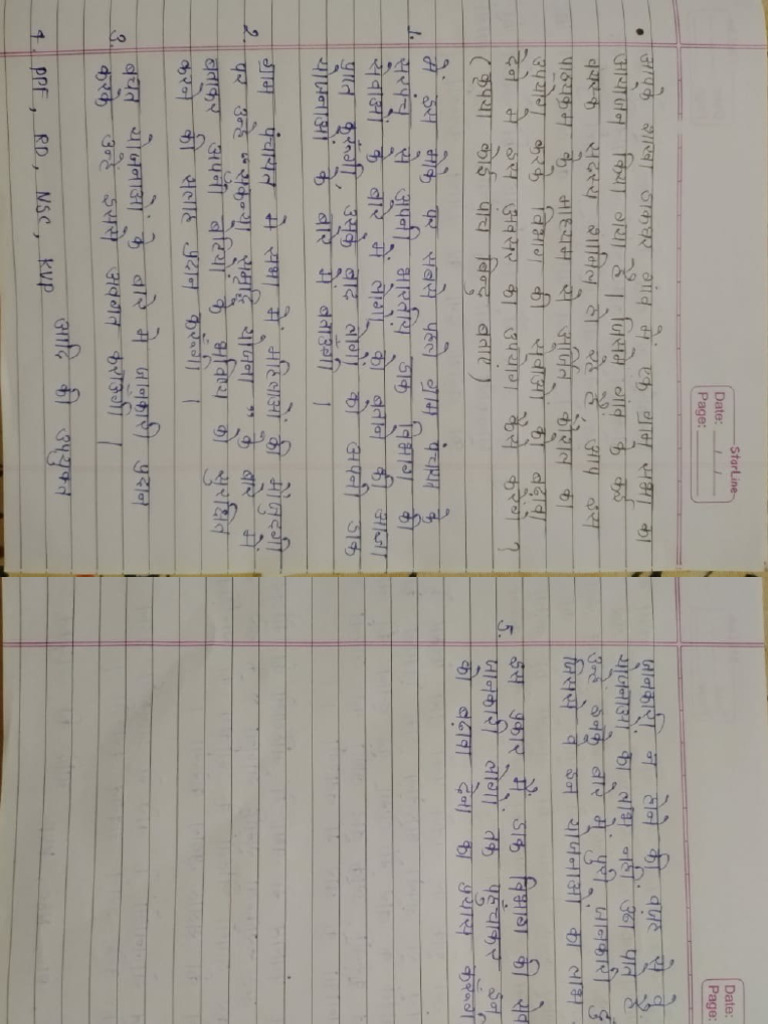 StarLine
Date: / /
Page:
• आपके शाखा डाकघर गांव में एक ग्राम सभा का
आयोजन किया गया है। जिसमें गांव के कई
वयस्क सदस्य शामिल हो रहे हैं आप इस
पाठ्यक्रम के माध्यम से अर्जित कौशल का
उपयोग करके विभाग की सेवाओं को बढ़ावा
देने में इस अवसर का उपयोग कैसे करेंगे ?
(कृपया कोई पांच बिन्दु बताए)
1. मैं इस मौके पर सबसे पहले ग्राम पंचायत के
सरपंच से अपनी भारतीय डाक विभाग की
सेवाओं के बारे में लोगों को बताने की आज्ञा
प्राप्त करूंगी, उसके बाद लोगों को अपनी डाक
योजनाओं के बारे में बताउंगी।
2. ग्राम पंचायत में सभा में महिलाओं की मौजुदगी
पर उन्हें "सुकन्या समृद्धि योजना" के बारे में
बताकर अपनी बेटियों के भविष्य को सुरक्षित
करने की सलाह प्रदान करूंगी।
3. बचत योजनाओं के बारे में जानकारी प्रदान
करके उन्हें इससे अवगत कराउंगी।
4. PPF, RD, NSC, KVP आदि की उपयुक्त
Date:
Page:
जानकारी न होने की वजह से वे
योजनाओं का लाभ नहीं उठा पाते हैं
उन्हें इनके बारे में पुरी जानकारी दुं
जिससे वे इन योजनाओं का लाभ
5. इस प्रकार मैं डाक विभाग की सेव
जानकारी लोगों तक पहुंचाकर इन
को बढ़ावा देने का प्रयास करूंगी